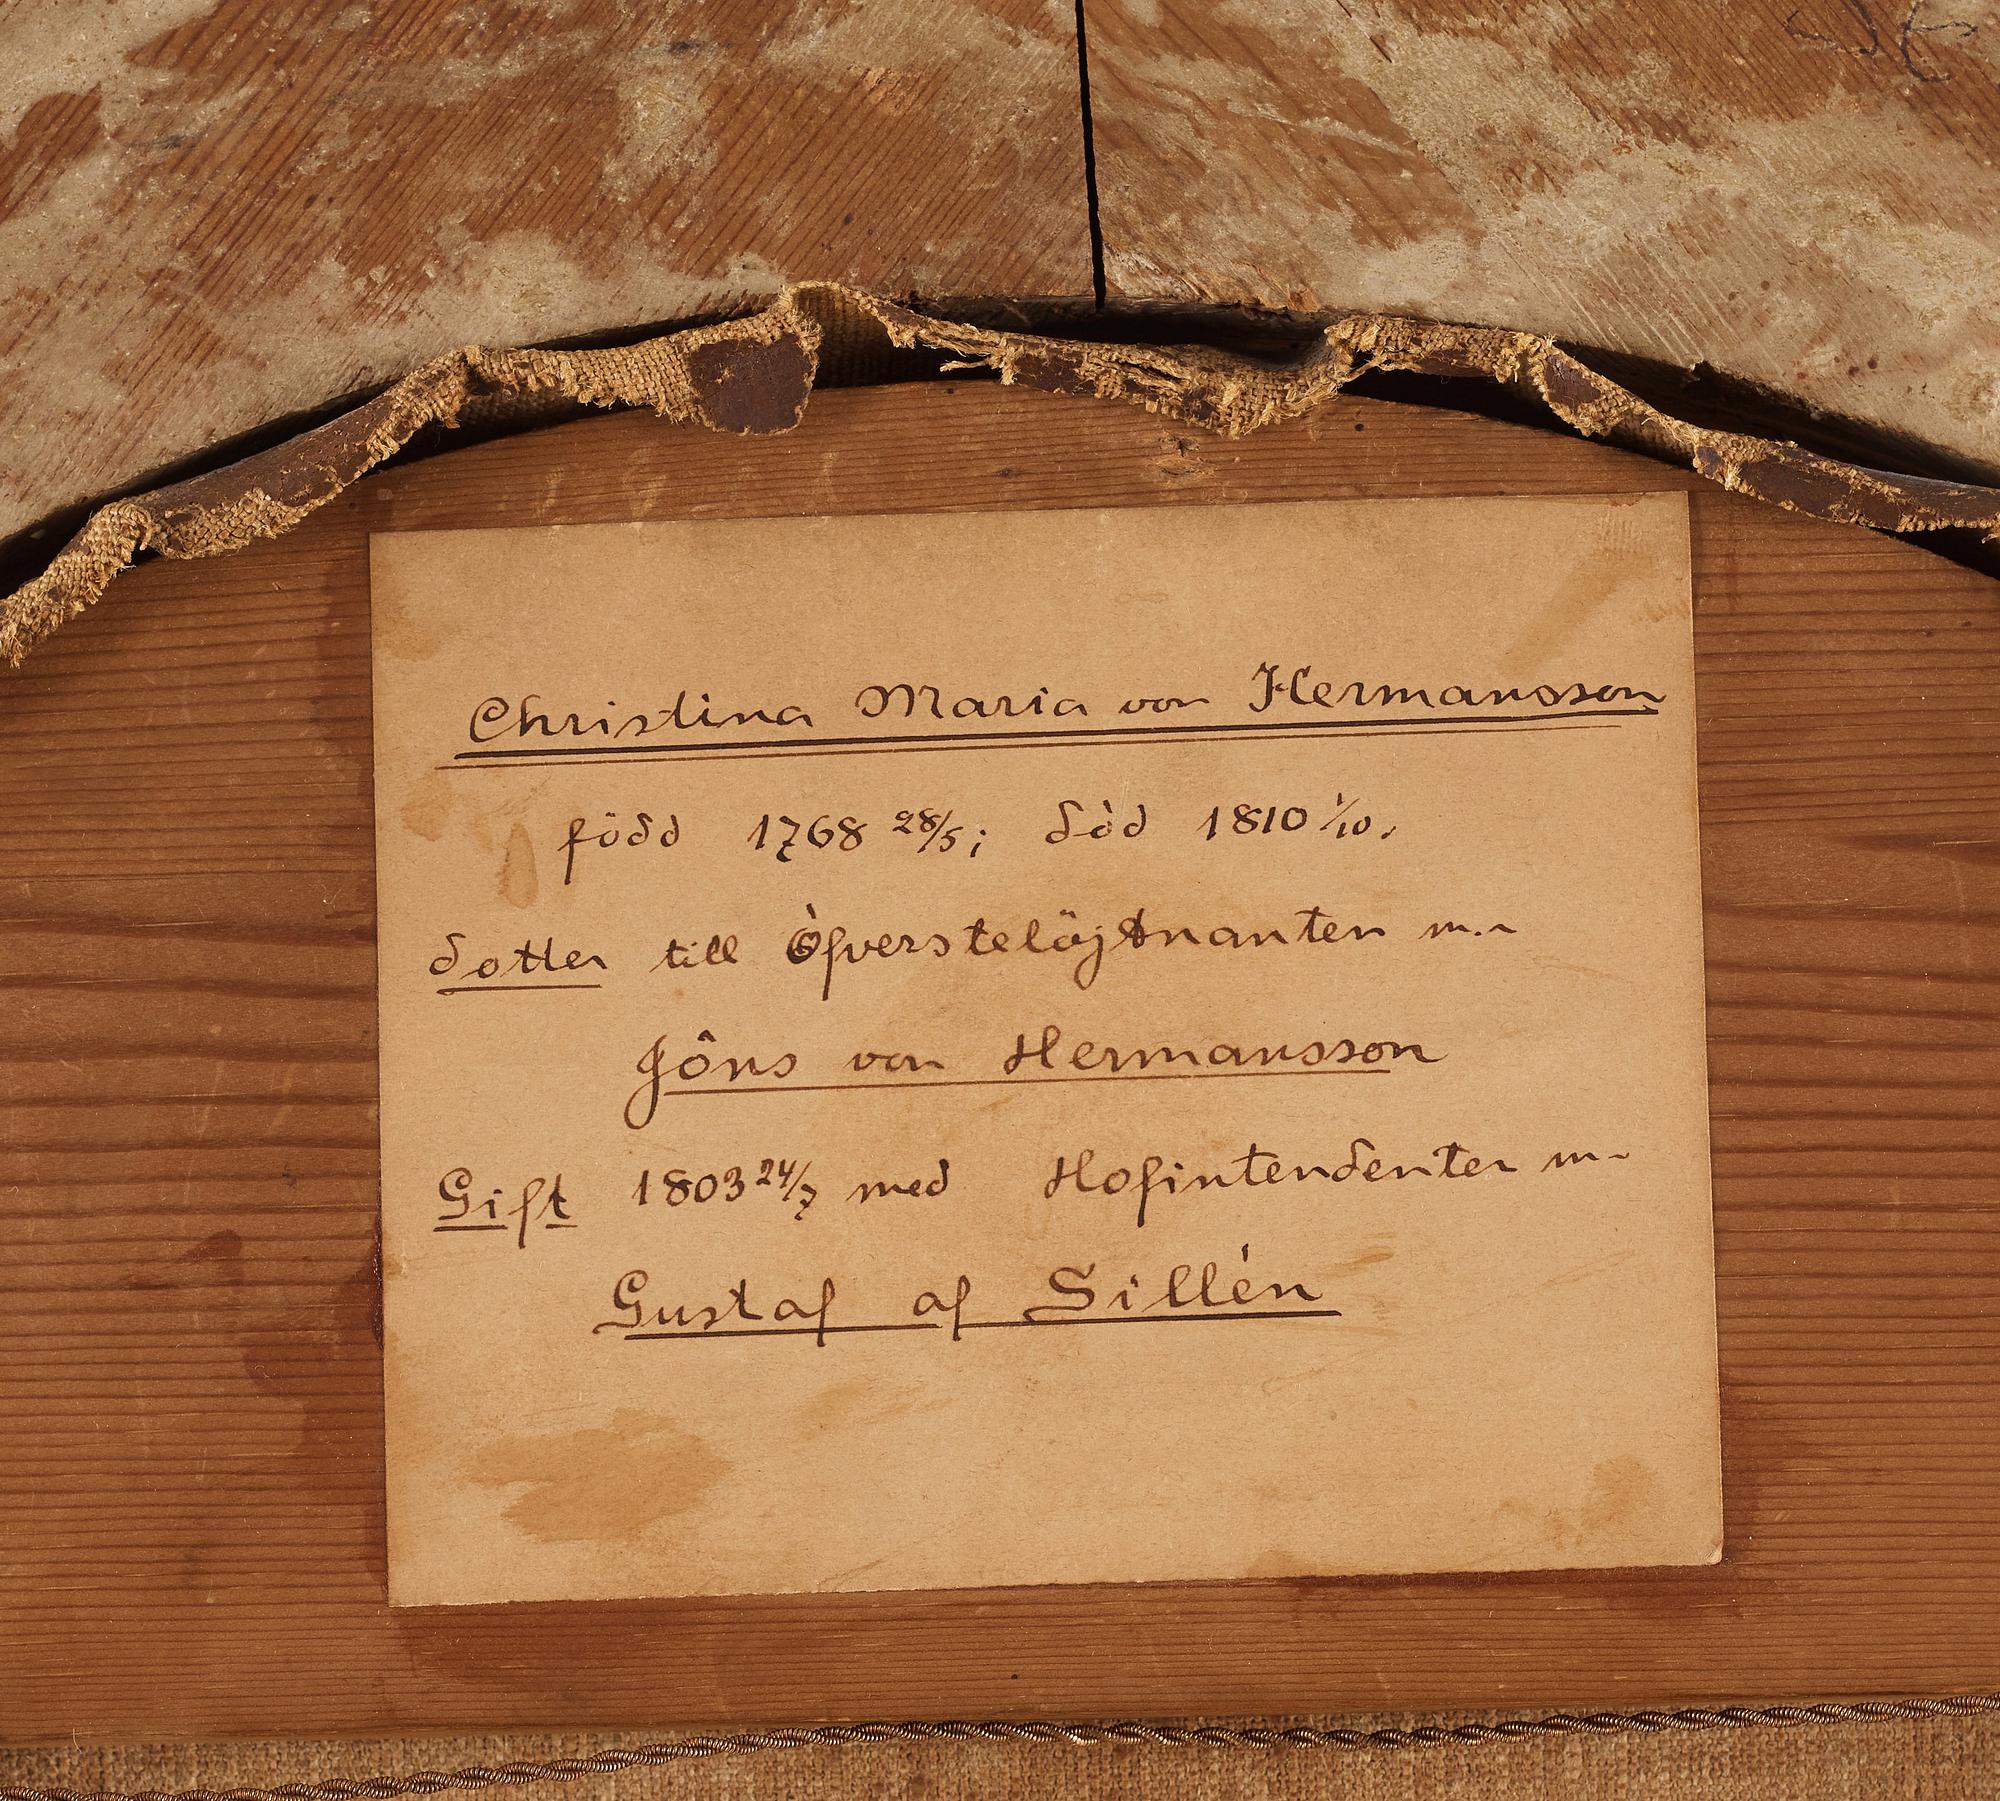 Christina Maria von Hermansson
född 1768 28/5; död 1810 1/10.
dotter till Öfverstelöjtnanten m.
Jöns von Hermansson
Gift 1803 24/7 med Hofintendenten m.
Gustaf af Sillén